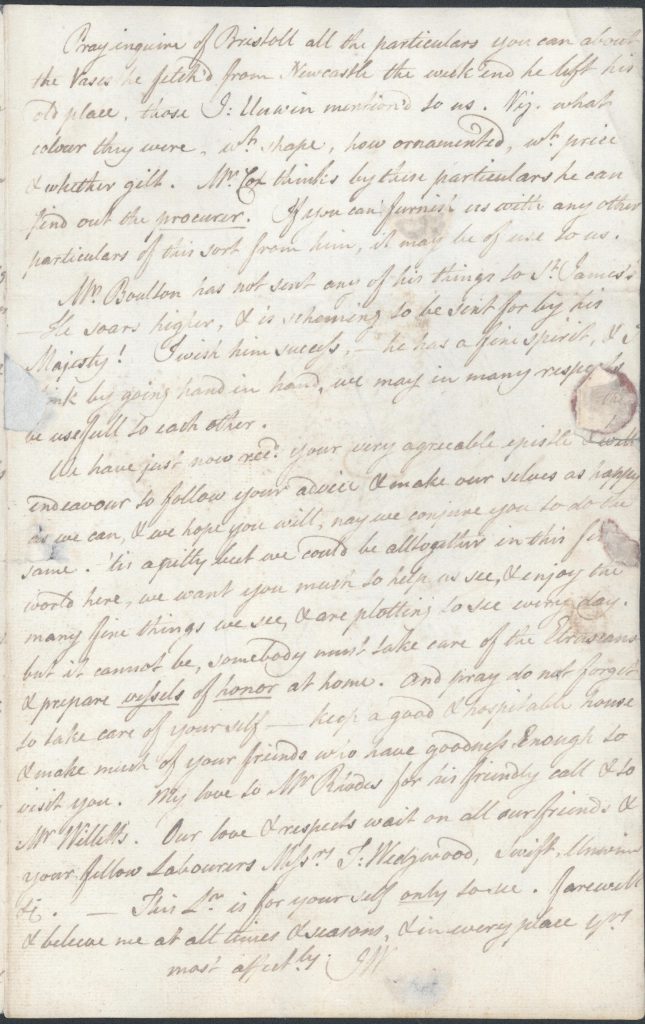 Pray inquire of Bristoll all the particulars you can about
the Vases he fetch'd from Newcastle the week end he left his
old place, those J: Unwin mention'd to us. Viz. what
colour they were, wt. shape, how ornamented, wt. price
& whether gilt. Mr. Cox thinks by these particulars he can
find out the procurer. If you can furnish us with any other
particulars of this sort from him, it may be of use to us.
Mr. Boulton has not sent any of his things to St. James's
— He soars higher, & is scheming to be sent for by his
Majesty! I wish him success, — he has a fine spirit, & I
ink by going hand in hand, we may in many respects
be usefull to each other.
We have just now recd. your very agreeable epistle & will
endeavour to follow your advice & make our selves as happy
as we can, & we hope you will, nay we conjure you to do the
same. 'tis a pitty but we could be alltogether in this fi
world here, we want you much to help us see, & enjoy the
many fine things we see, & are plotting to see every day.
but it cannot be, somebody must take care of the Etruscans
& prepare vessels of honor at home. And pray do not forget
to take care of yourself — keep a good & hospitable house
& make much of your friends who have goodness Enough to
visit you. My love to Mr. Rhodes for his friendly call & to
Mr Willetts. Our love & respects wait on all our friends &
your fellow Labourers Messrs. T: Wedgwood, Swift, Unwin
&c. — This Lr. is for your self only to see. Farewell
& believe me at all times & seasons, & in every place yrs
most affectly. JW